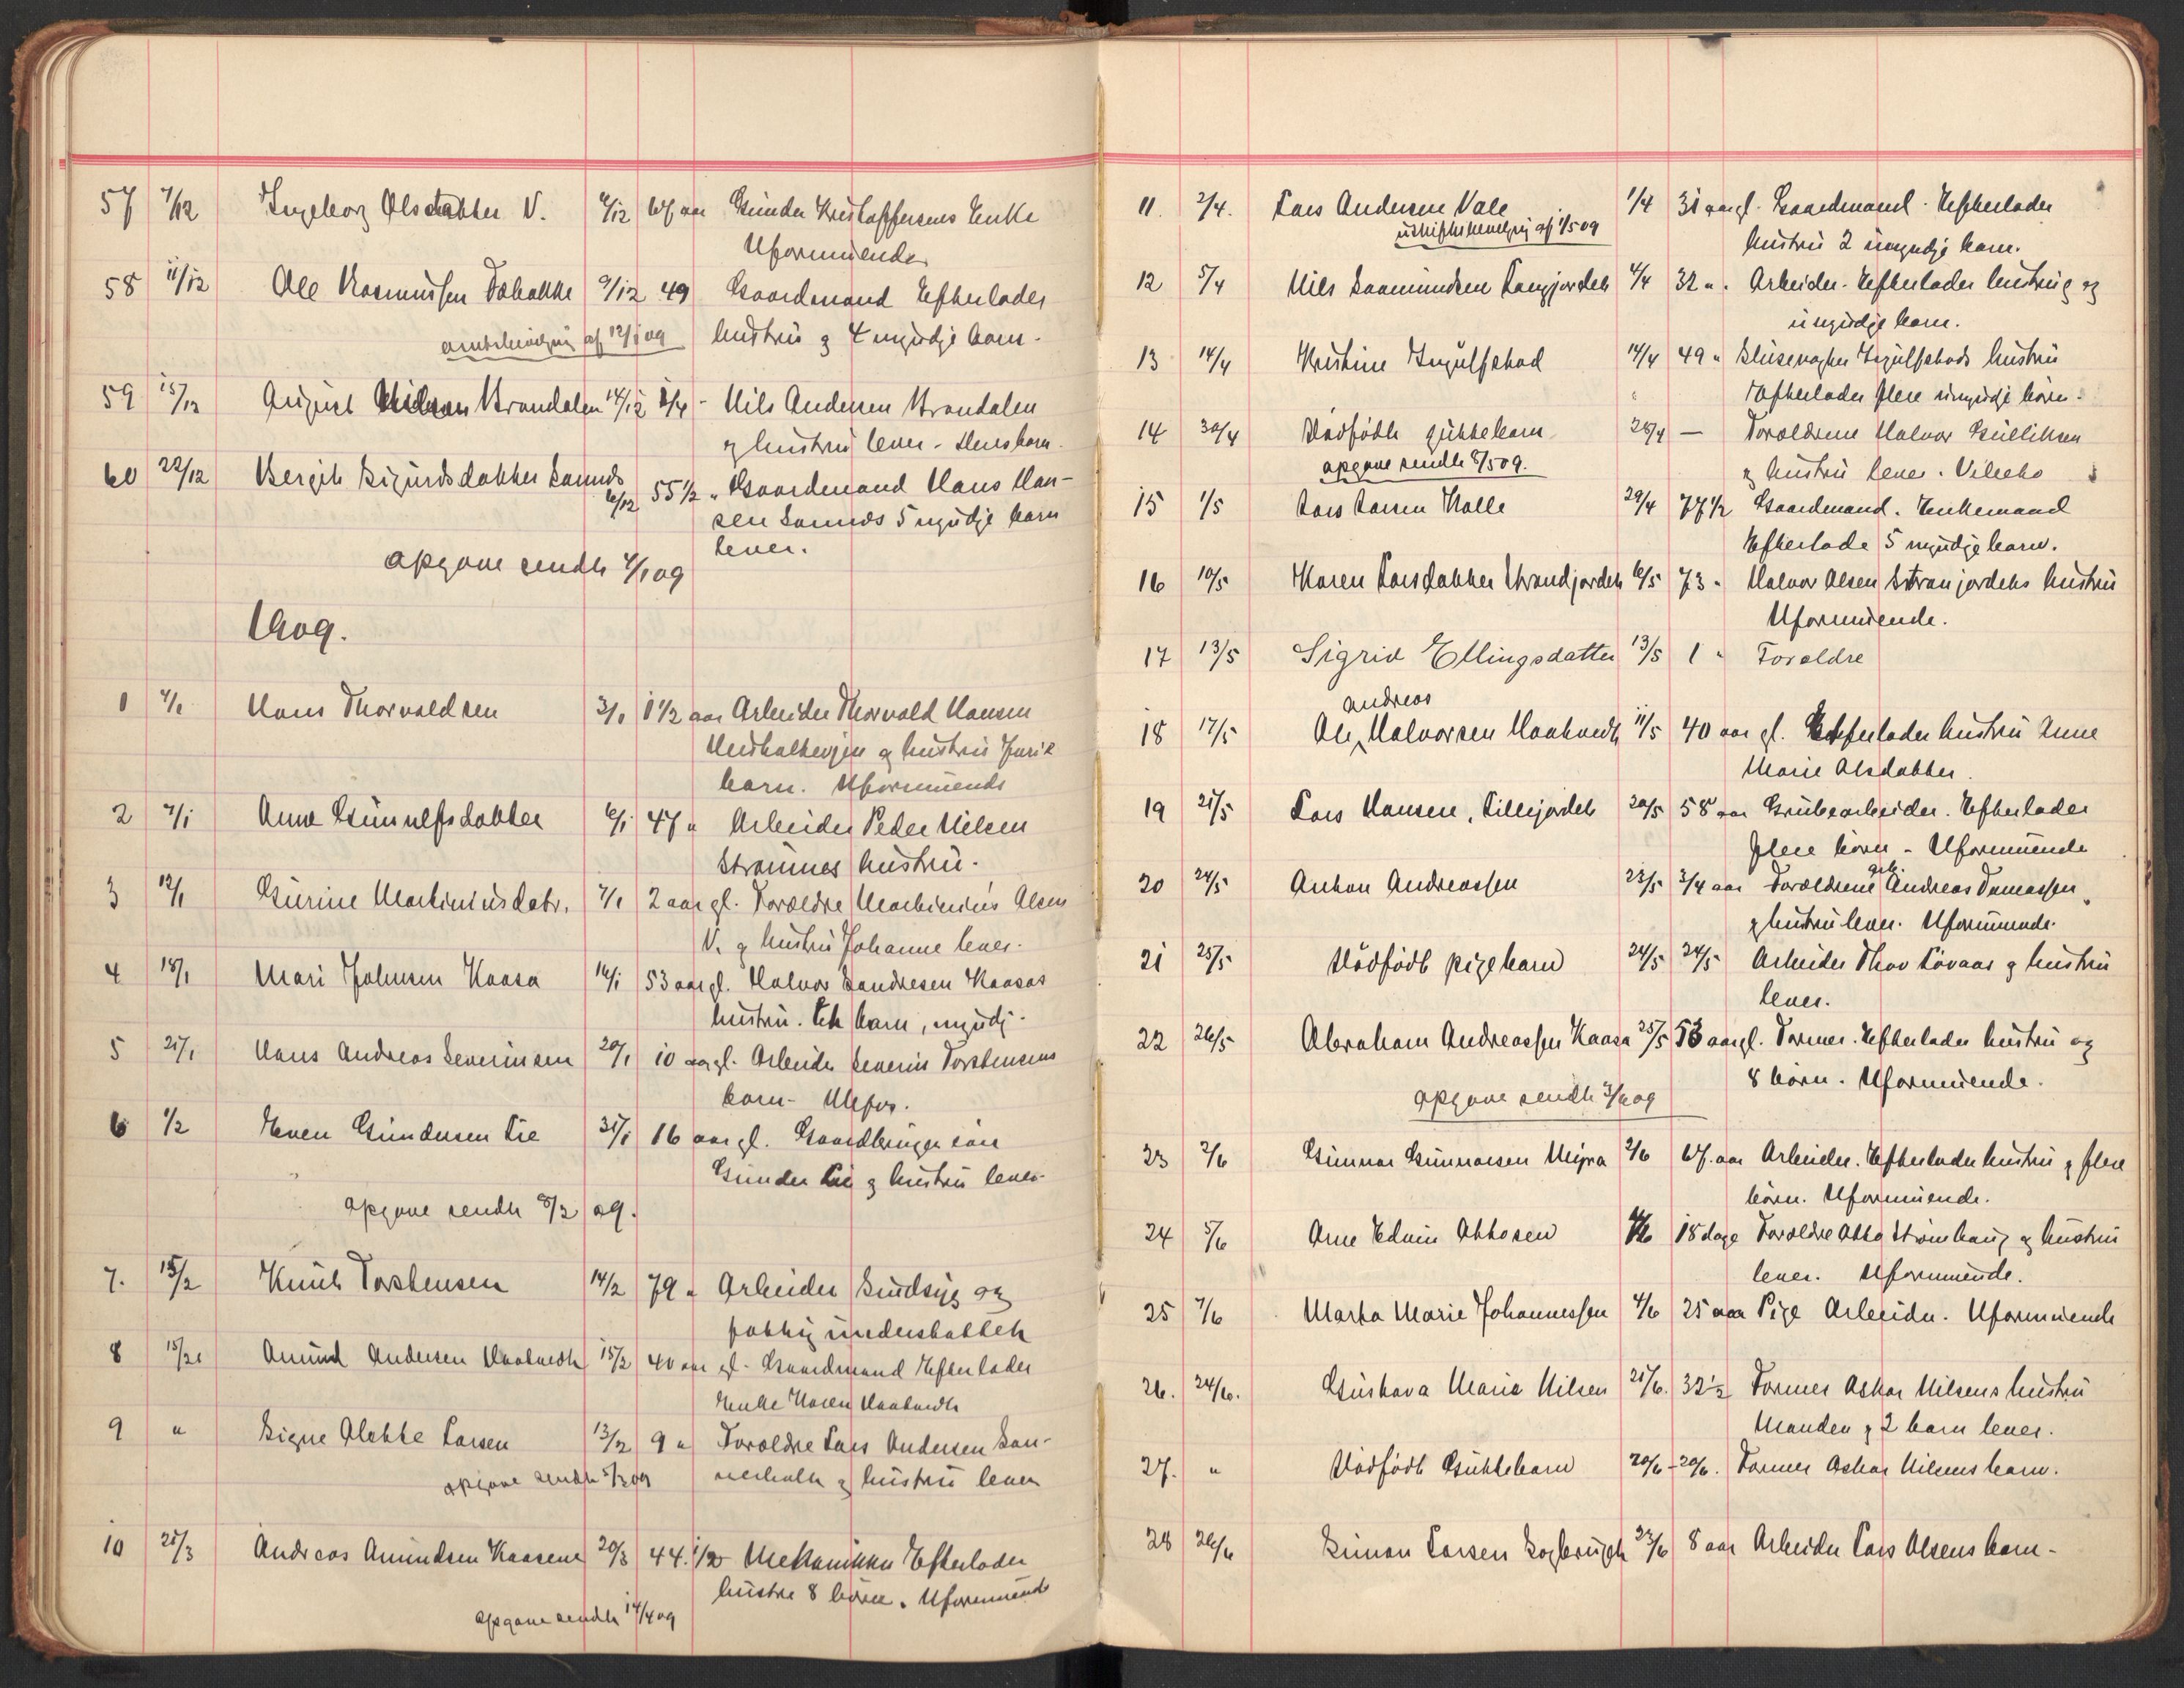 57 7/12 Ingeborg Olsdatter V. 6/12 67 aar Gunder Kristoffersens Enke
Uformuende
58 11/12 Ole Rasmussen 9/12 49 Gaardmand Efterlader
af 12/1 09 hustru og 4 myndige barn.
59 15/12 August Nilsen Strandalen 14/12 - Nils Andersen Strandalen
og hustru lever. Deres barn.
60 22/12 Bergit Sigurdsdatter Sannes
6/12 55 1/2 " Gaardmand Hans Han-
sen Sannes 5 myndige barn
lever.
opgave sendt 4/1 09
1909.
1 4/1 Hans Thorvaldsen 3/1 1 1/2 aar Arbeider Thorvald Hansen
og hustrus
barn. Uformuende
2 7/1 Anne Gunnulfsdatter 6/1 47 " Arbeider Peder Nilsen
Strømnes hustru.
3 12/1 Gurine Martiniusdatr. 7/1 2 aar gl. Forældre Martinius Olsen
V. og hustru Johanne lever.
4 18/1 Mari Johnsen Kaasa 16/1 53 aar gl. Halvor Sandresen Kaasas
hustru. Et barn, myndig.
5 21/1 Hans Andreas Severinsen 20/1 10 aar gl. Arbeider Severin Torstensens
barn. Ufor.
6 1/2 Even Gundersen Lie 31/1 16 aar gl. Gaardbruger søn
Gunder Lie og hustru lever.
opgave sendt 8/2 09.
7. 15/2 Knut Torstensen 14/2 79 " Arbeider Sindsyg og
fattig understøttet
8 15/2 Amund Andersen Vaatvedt 15/2 40 aar gl. Gaardmand Efterlader
Enke Karen Vaatvedt
9 " Signe Alette Larsen 13/2 9 " Forældre Lars Andersen San-
nerholt og hustru lever
opgave sendt 5/3 09
10 21/3 Andreas Amundsen Kaasene 20/3 44 1/2 Mekaniker Efterlader
hustru 8 børn. Uformuende
opgave sendt 14/4 09
11. 2/4. Lars Andersen Vale 1/4 31 aar gl. Gaardmand. Efterlader
hustru 2 umyndige barn.
uskiftebevilgning af 1/5 09
12 5/4 Nils Saamundsen Langjordet 4/4 32 ". Arbeider. Efterlader hustru og
umyndige barn.
13 14/4 Kristine Ingulfstad 14/4 49 " Slusevogter Ingulfstads hustru
Efterlader flere umyndige børn.
14 30/4 Dødfødt guttebarn 28/4 — Forældrene Halvor Gulliksen
og hustru lever.
opgave sendt 8/5 09.
15 1/5 Lars Larsen Kolle 29/4 77 1/2 Gaardmand. Enkemand
Efterlade 5 myndige barn.
16 10/5 Karen Larsdatter Strandjordet 6/5 73 " Halvor Olsen Stranjordets hustru
Uformuende.
17 13/5 Sigrid Ellingsdatter 13/5 1 " Forældre
andreas
18 17/5 Ole Halvorsen Vaatvedt 11/5 40 aar gl. Efterlader hustru Anne
Marie Olsdatter.
19 21/5 Lars Hansen, Lillejordet 20/5 58 aar Grubearbeider. Efterlader
flere børn. Uformuende
20 24/5 Anton Andreassen 23/5 3/4 aar Forældrene Andreas Tomassen
og hustru lever. Uformuende.
21 25/5 Dødfødt pigebarn 24/5 24/5 Arbeider Thov Løvaas og hustru
lever.
22 26/5 Abraham Andreassen Kaasa 25/5 53 aar gl. Former. Efterlader hustru og
8 børn. Uformuende.
opgave sendt 3/6 09
23 2/6 Gunnar Gunnarsen Myra 2/6 67 aar Arbeider. Efterlader hustru og flere
børn. Uformuende.
24 5/6 Arne Edvin Ottosen 18 dage Forældre Otto Strømhaug og hustru
lever. Uformuende.
25 7/6 Marta Marie Johannessen 4/6 25 aar Pige Arbeider. Uformuende
26. 24/6. Gustava Marie Nilsen 21/6. 32 1/2 Former Oskar Nilsens hustru
Manden og 2 barn lever.
27. " Dødfødt Guttebarn 20/6 - 20/6. Former Oskar Nilsens barn.
28 26/6 Simon Larsen 23/6 8 aar Arbeider Lars Olsens barn.